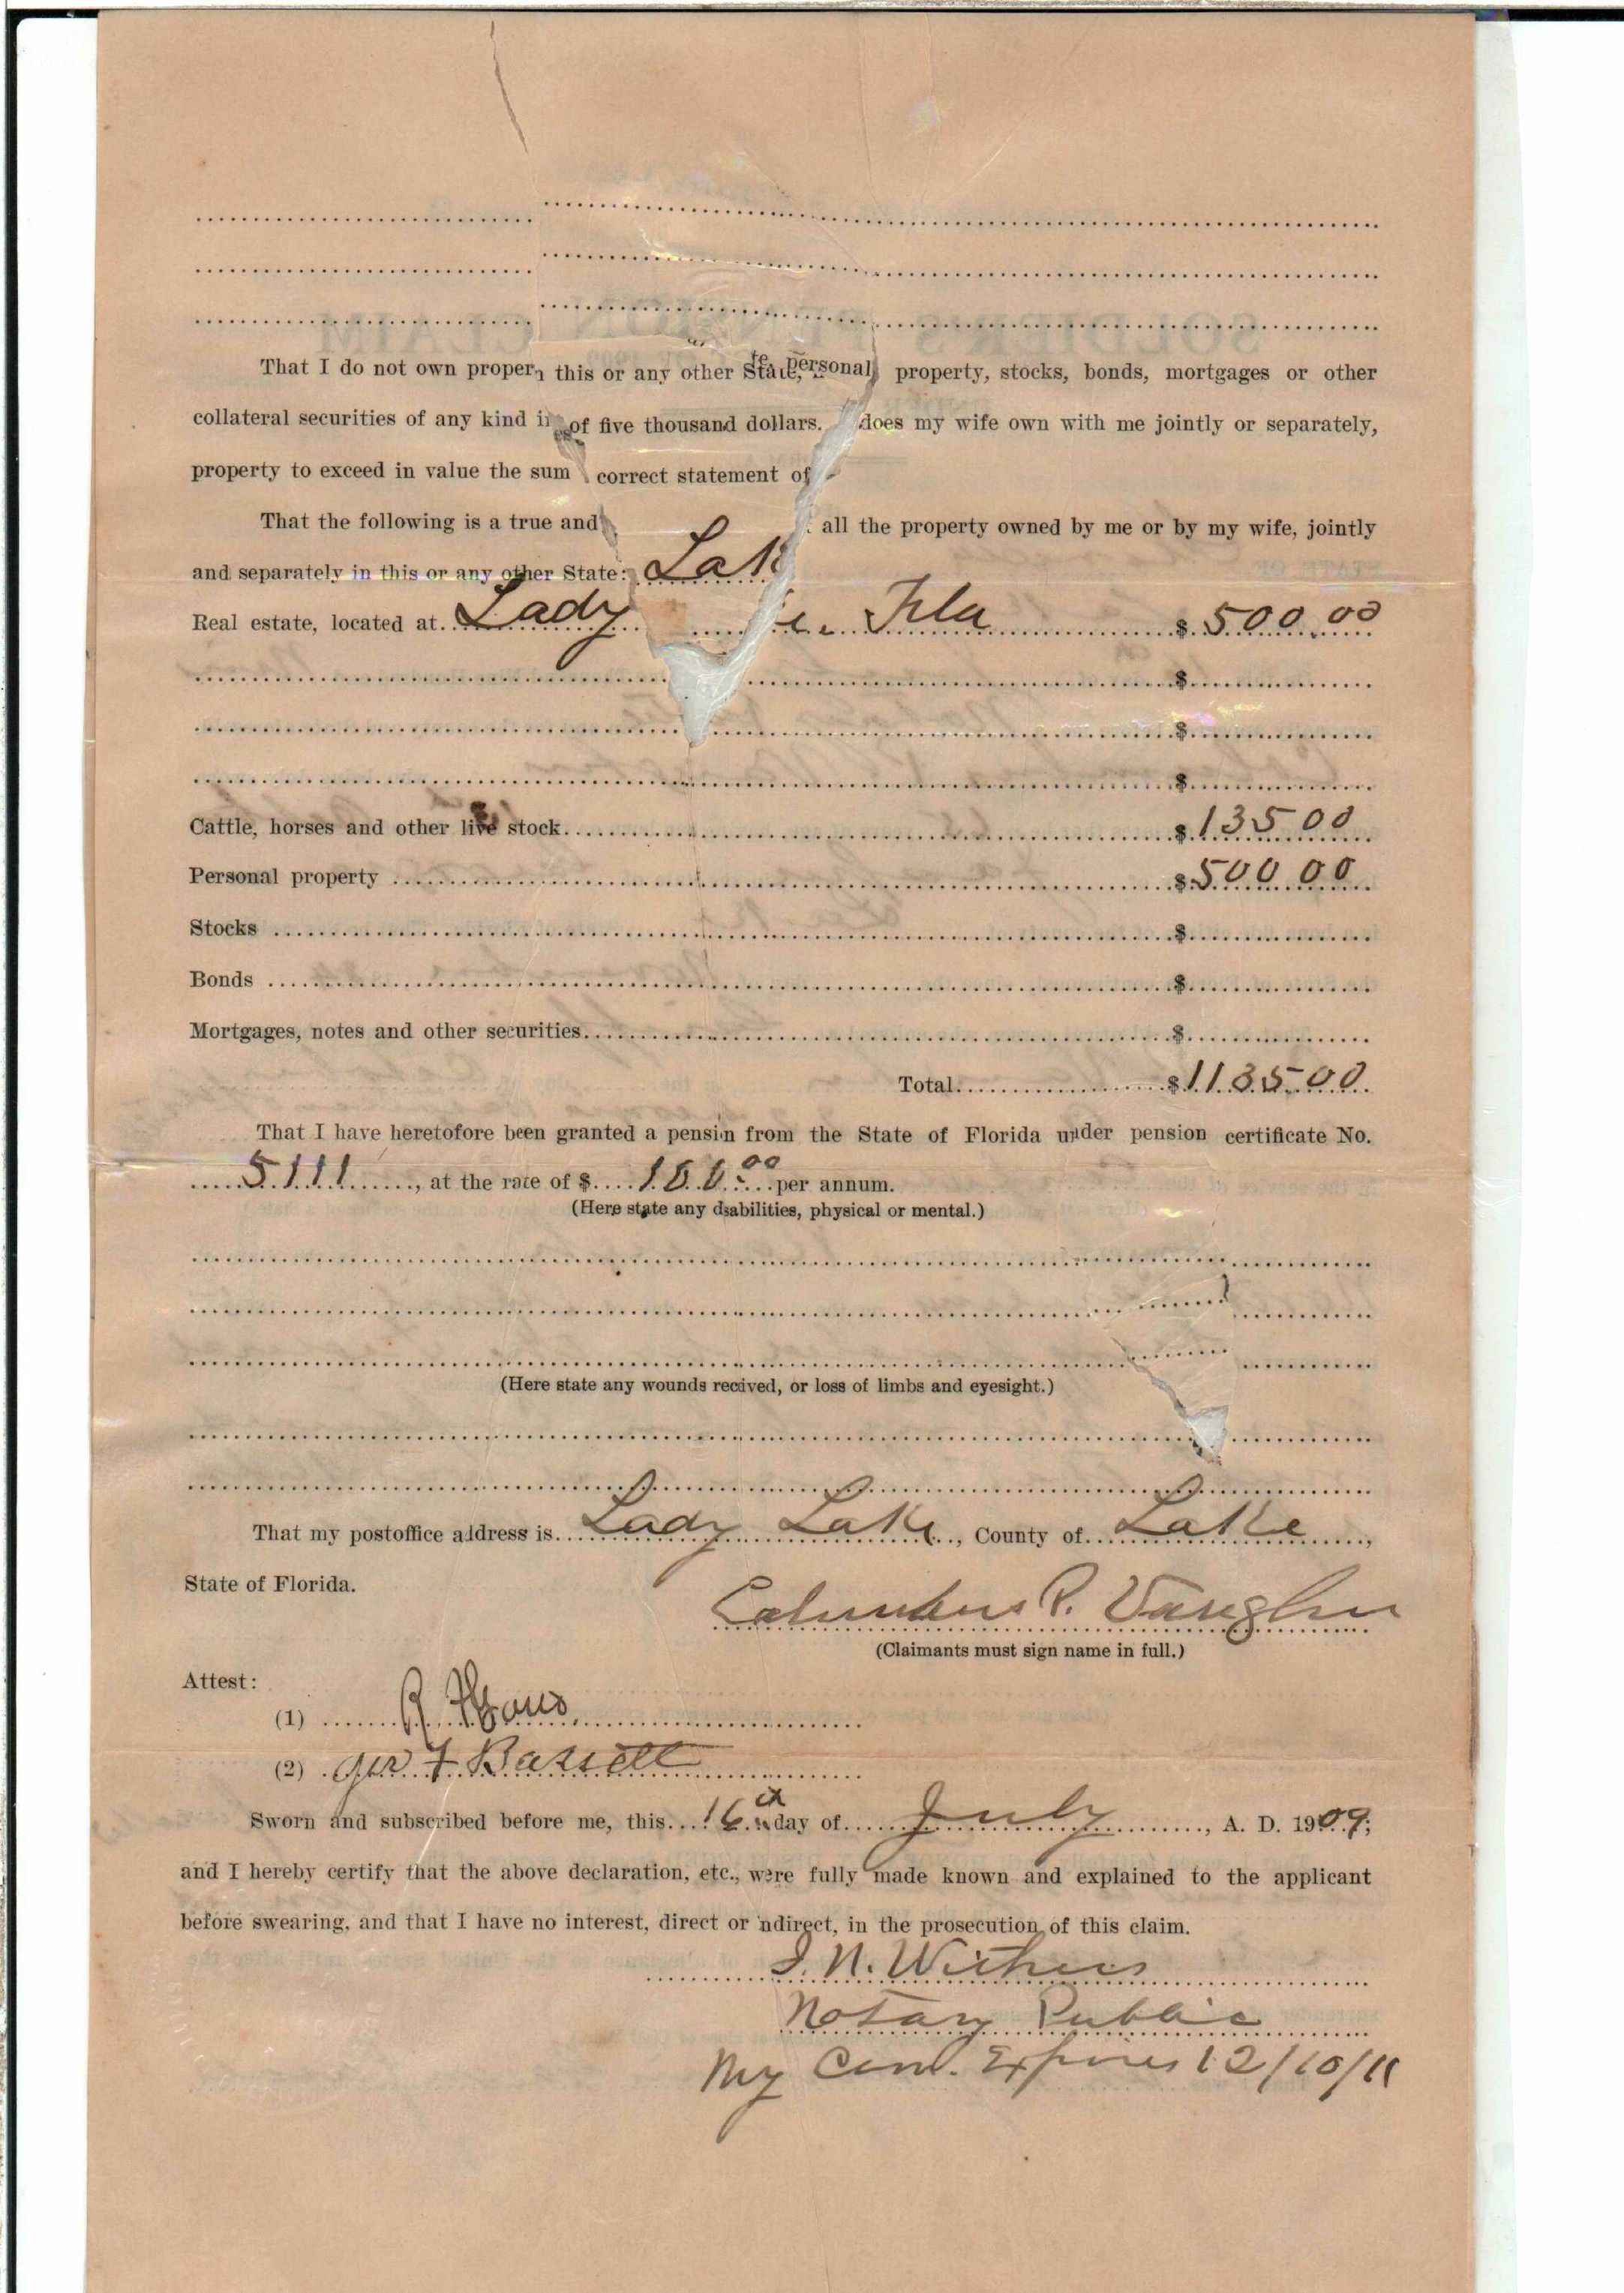 That I do not own proper this or any other State, personal property, stocks, bonds, mortgages or other
collateral securities of any kind in of five thousand dollars. does my wife own with me jointly or separately,
property to exceed in value the sum correct statement of
That the following is a true and all the property owned by me or by my wife, jointly
and separately in this or any other State: Lak
Real estate, located at Lady e. Fla $ 500.00
$
$
$
Cattle, horses and other live stock $ 135 00
Personal property $ 500 00
Stocks $
Bonds $
Mortgages, notes and other securities $
Total $ 1135 00
That I have heretofore been granted a pensin from the State of Florida under pension certificate No.
5111, at the rate of $ per annum.
(Here state any dsabilities, physical or mental.)
(Here state any wounds received, or loss of limbs and eyesight.)
That my postoffice address is Lady Lake, County of Lake,
State of Florida.
Columbus P. Vaughn
(Claimants must sign name in full.)
Attest:
(1) R
(2) Geo F Bassett
Sworn and subscribed before me, this 16th day of July, A. D. 1909;
and I hereby certify that the above declaration, etc., were fully made known and explained to the applicant
before swearing, and that I have no interest, direct or ndirect, in the prosecution of this claim.
I. N. Withers
Notary Public
My Com. Expires 12/10/11